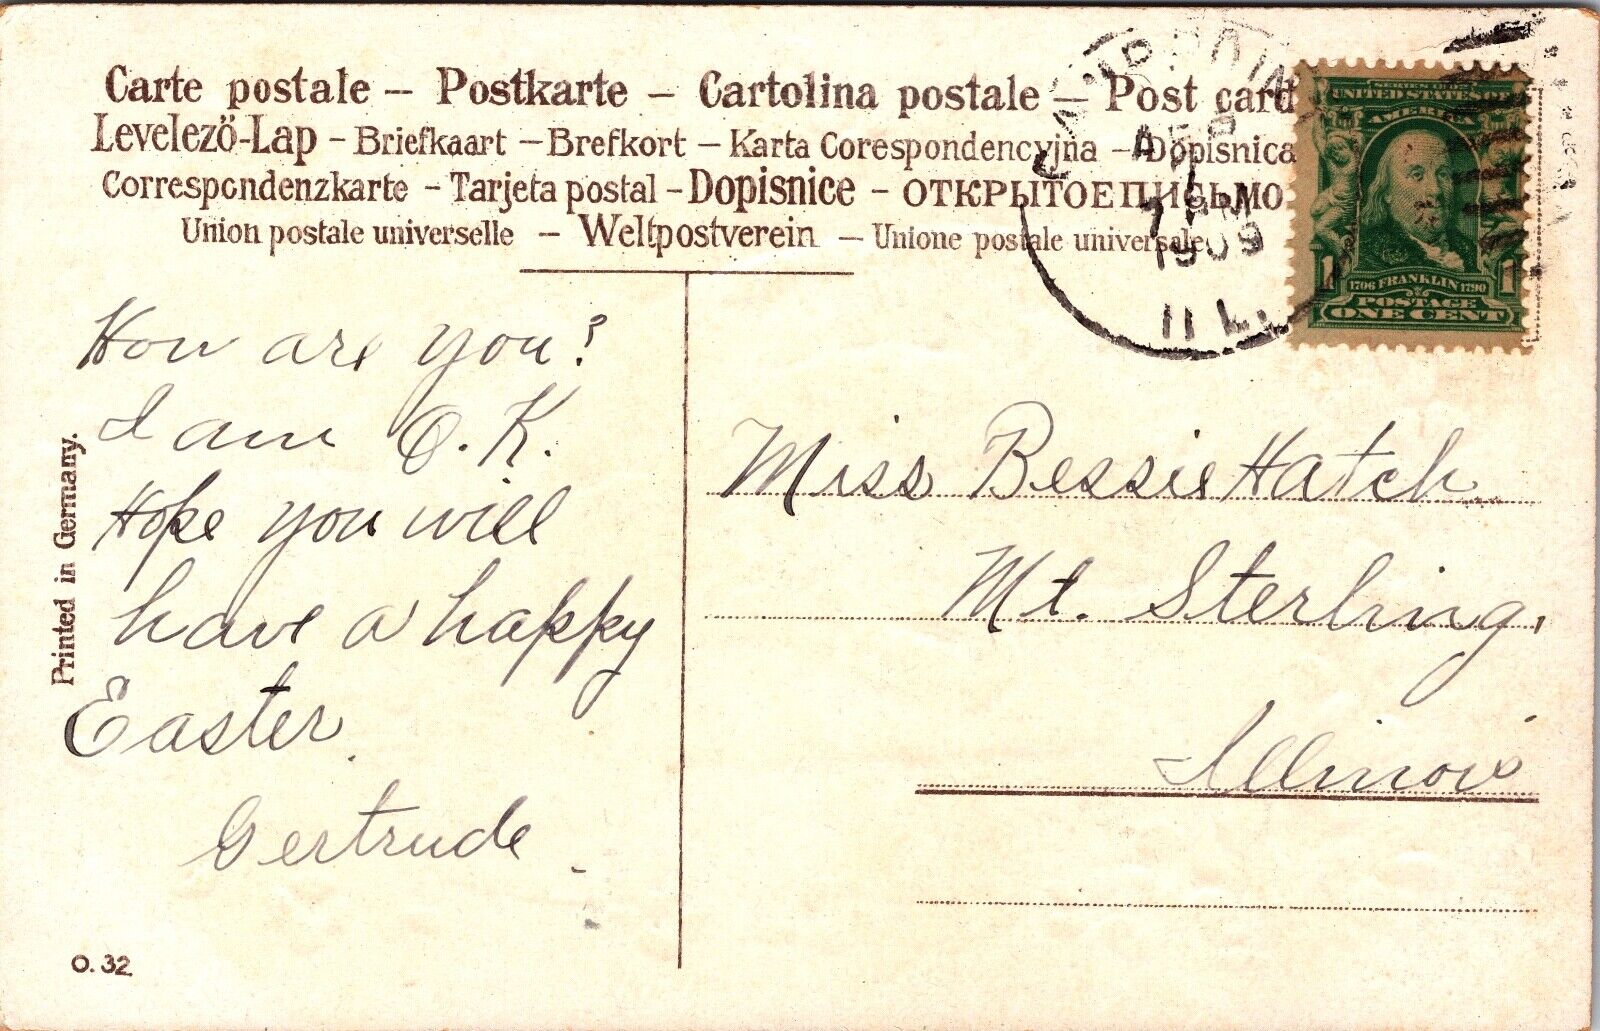 Carte postale – Postkarte – Cartolina postale – Post card
Levelező-Lap – Briefkaart – Brefkort – Karta Corespondencyjna – Dopisnica
Correspondenzkarte – Tarjeta postal – Dopisnice – ОТКРЫТОЕ ПИСЬМО
Union postale universelle – Weltpostverein – Unione postale universale
APR
7
7 PM
1909
ILL.
SERIES 1902
UNITED STATES OF
AMERICA
1706 FRANKLIN 1790
1 1
POSTAGE
ONE CENT
How are you?
I am O.K.
Hope you will
have a happy
Easter.
Gertrude
Miss Bessie Hatch
Mt. Sterling,
Illinois
Printed in Germany.
O. 32